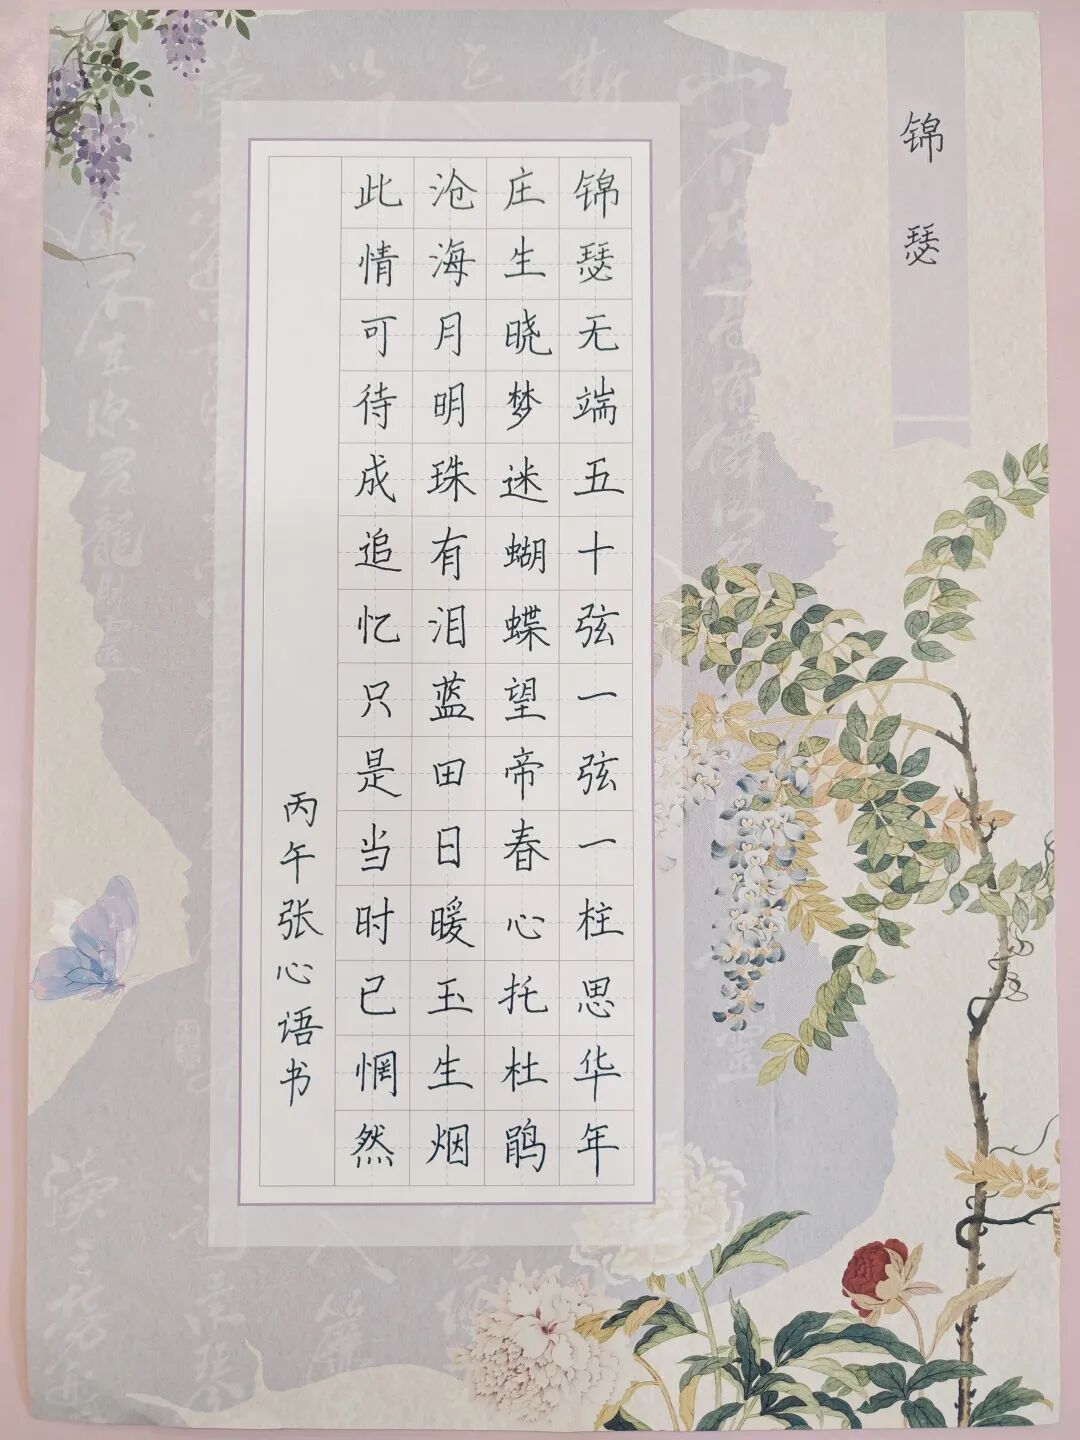 锦瑟
锦瑟无端五十弦一弦一柱思华年
庄生晓梦迷蝴蝶望帝春心托杜鹃
沧海月明珠有泪蓝田日暖玉生烟
此情可待成追忆只是当时已惘然
丙午张心语书